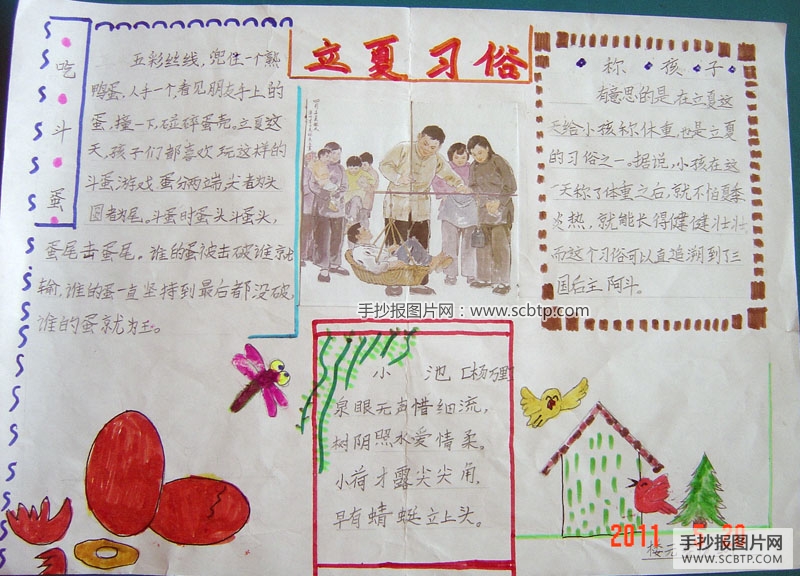 立夏习俗
吃斗蛋
五彩丝线,兜住一个熟
鸭蛋,人手一个看见朋友手上的
蛋,撞一下,碰碎蛋壳。立夏这
天,孩子们都喜欢玩这样的
斗蛋游戏 蛋分两端,尖者为头
圆者为尾。斗蛋时蛋头斗蛋头,
蛋尾击蛋尾。谁的蛋被击破谁就
输,谁的蛋一直坚持到最后都没破,
谁的蛋就为王。
称孩子
有意思的是,在立夏这
天给小孩称体重,也是立夏
的习俗之一。据说,小孩在这
一天称了体重之后,就不怕夏季
炎热,就能长得健健壮壮
而这个习俗可以直追溯到了三
国后主阿斗。
手抄报图片网:www.scbtp.com
小池 [杨万里]
泉眼无声惜细流,
树阴照水爱情柔。
小荷才露尖尖角,
早有蜻蜓立上头。
2011
手抄报图片网
WWW.SCBTP.COM